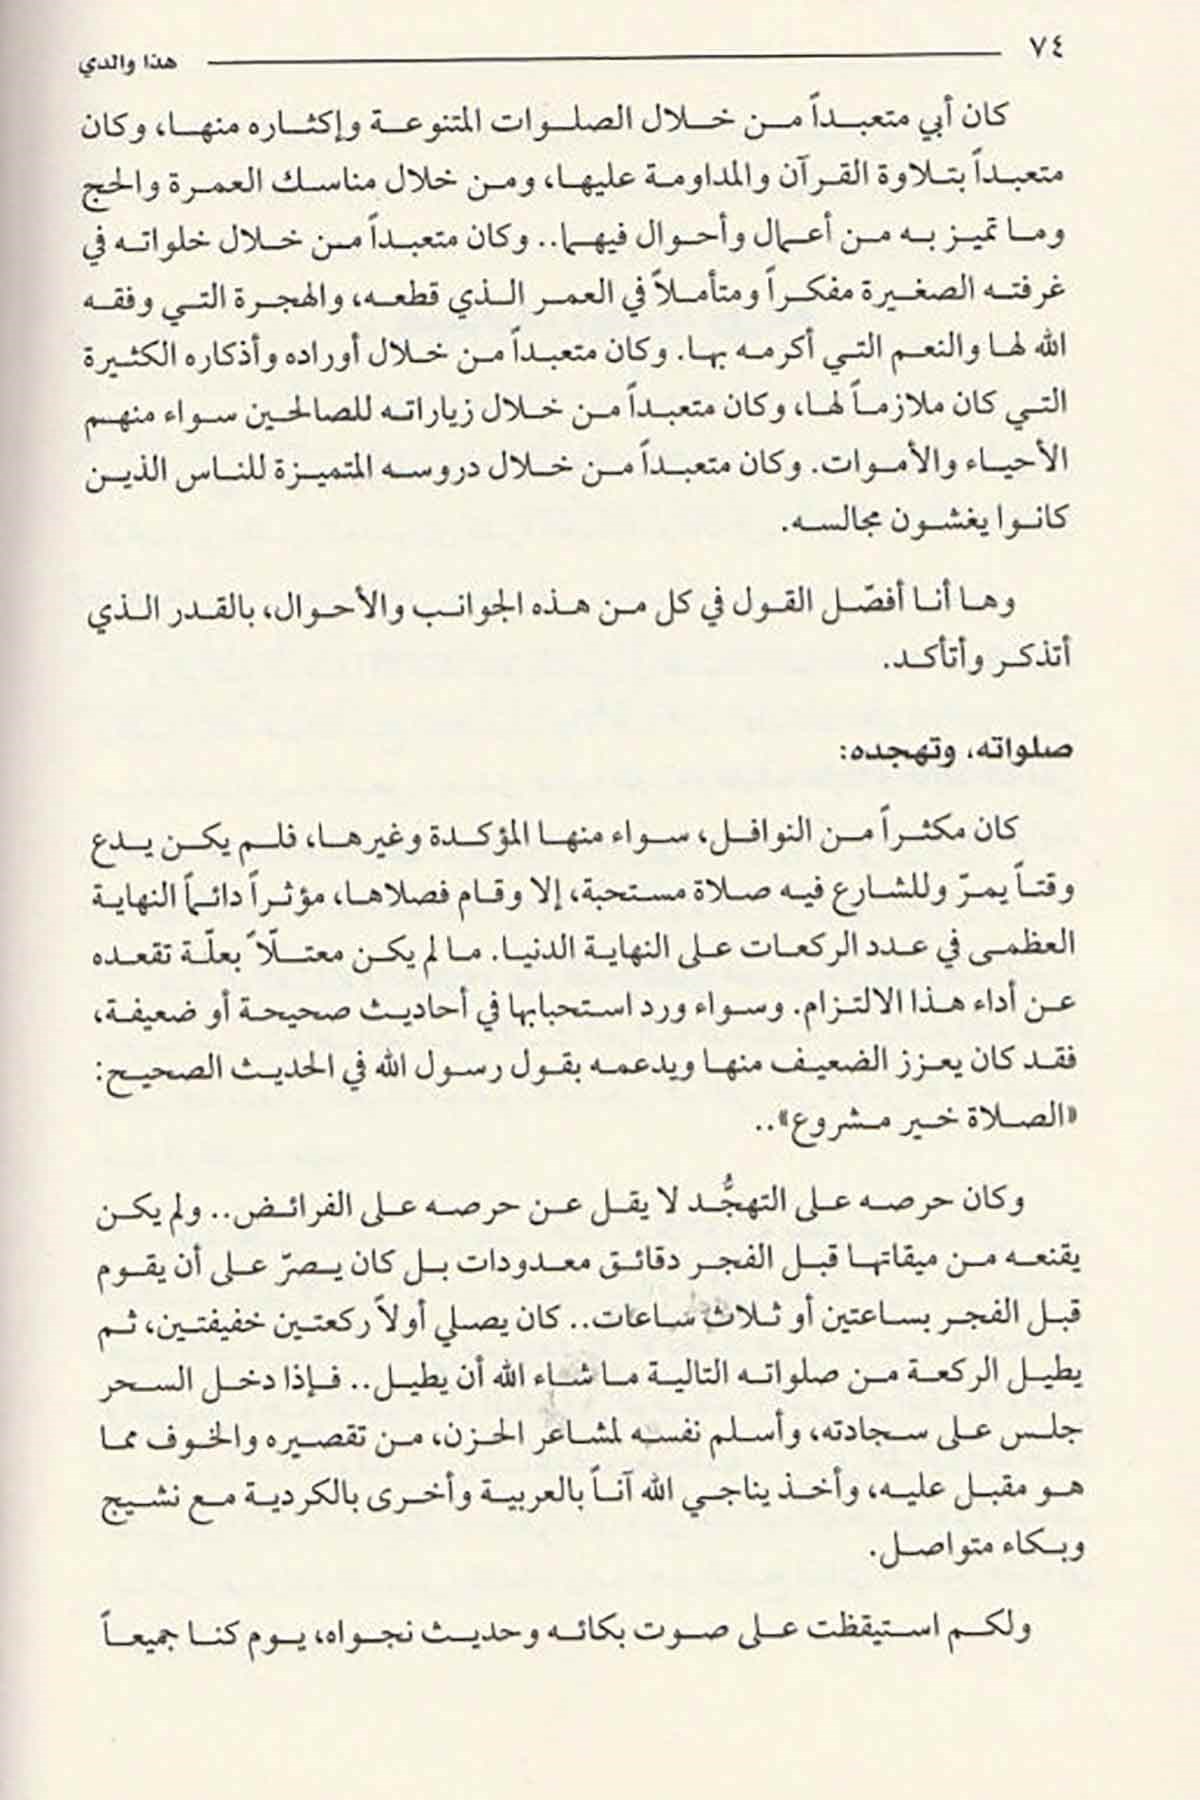 ٧٤ هذا والدي
كان أبي متعبداً من خلال الصلوات المتنوعة وإكثاره منها، وكان
متعبداً بتلاوة القرآن والمداومة عليها، ومن خلال مناسك العمرة والحج
وما تميز به من أعمال وأحوال فيهما.. وكان متعبداً من خلال خلواته في
غرفته الصغيرة مفكراً ومتأملاً في العمر الذي قطعه، والهجرة التي وفقه
الله لها والنعم التي أكرمه بها. وكان متعبداً من خلال أوراده وأذكاره الكثيرة
التي كان ملازماً لها، وكان متعبداً من خلال زياراته للصالحين سواء منهم
الأحياء والأموات. وكان متعبداً من خلال دروسه المتميزة للناس الذين
كانوا يغشون مجالسه.
وها أنا أفصّل القول في كل من هذه الجوانب والأحوال، بالقدر الذي
أتذكر وأتأكد.
صلواته، وتهجده:
كان مكثراً من النوافل، سواء منها المؤكدة وغيرها، فلم يكن يدع
وقتاً يمرّ وللشارع فيه صلاة مستحبة، إلا وقام فصلاها، مؤثراً دائماً النهاية
العظمى في عدد الركعات على النهاية الدنيا. ما لم يكن معتلّاً بعلّة تقعده
عن أداء هذا الالتزام. وسواء ورد استحبابها في أحاديث صحيحة أو ضعيفة،
فقد كان يعزز الضعيف منها ويدعمه بقول رسول الله في الحديث الصحيح:
«الصلاة خير مشروع»..
وكان حرصه على التهجُّد لا يقل عن حرصه على الفرائض.. ولم يكن
يقنعه من ميقاتها قبل الفجر دقائق معدودات بل كان يصرّ على أن يقوم
قبل الفجر بساعتين أو ثلاث ساعات.. كان يصلي أولاً ركعتين خفيفتين، ثم
يطيل الركعة من صلواته التالية ما شاء الله أن يطيل.. فإذا دخل السحر
جلس على سجادته، وأسلم نفسه لمشاعر الحزن، من تقصيره والخوف مما
هو مقبل عليه، وأخذ يناجي الله آناً بالعربية وأخرى بالكردية مع نشيج
وبكاء متواصل.
ولكم استيقظت على صوت بكائه وحديث نجواه، يوم كنا جميعاً